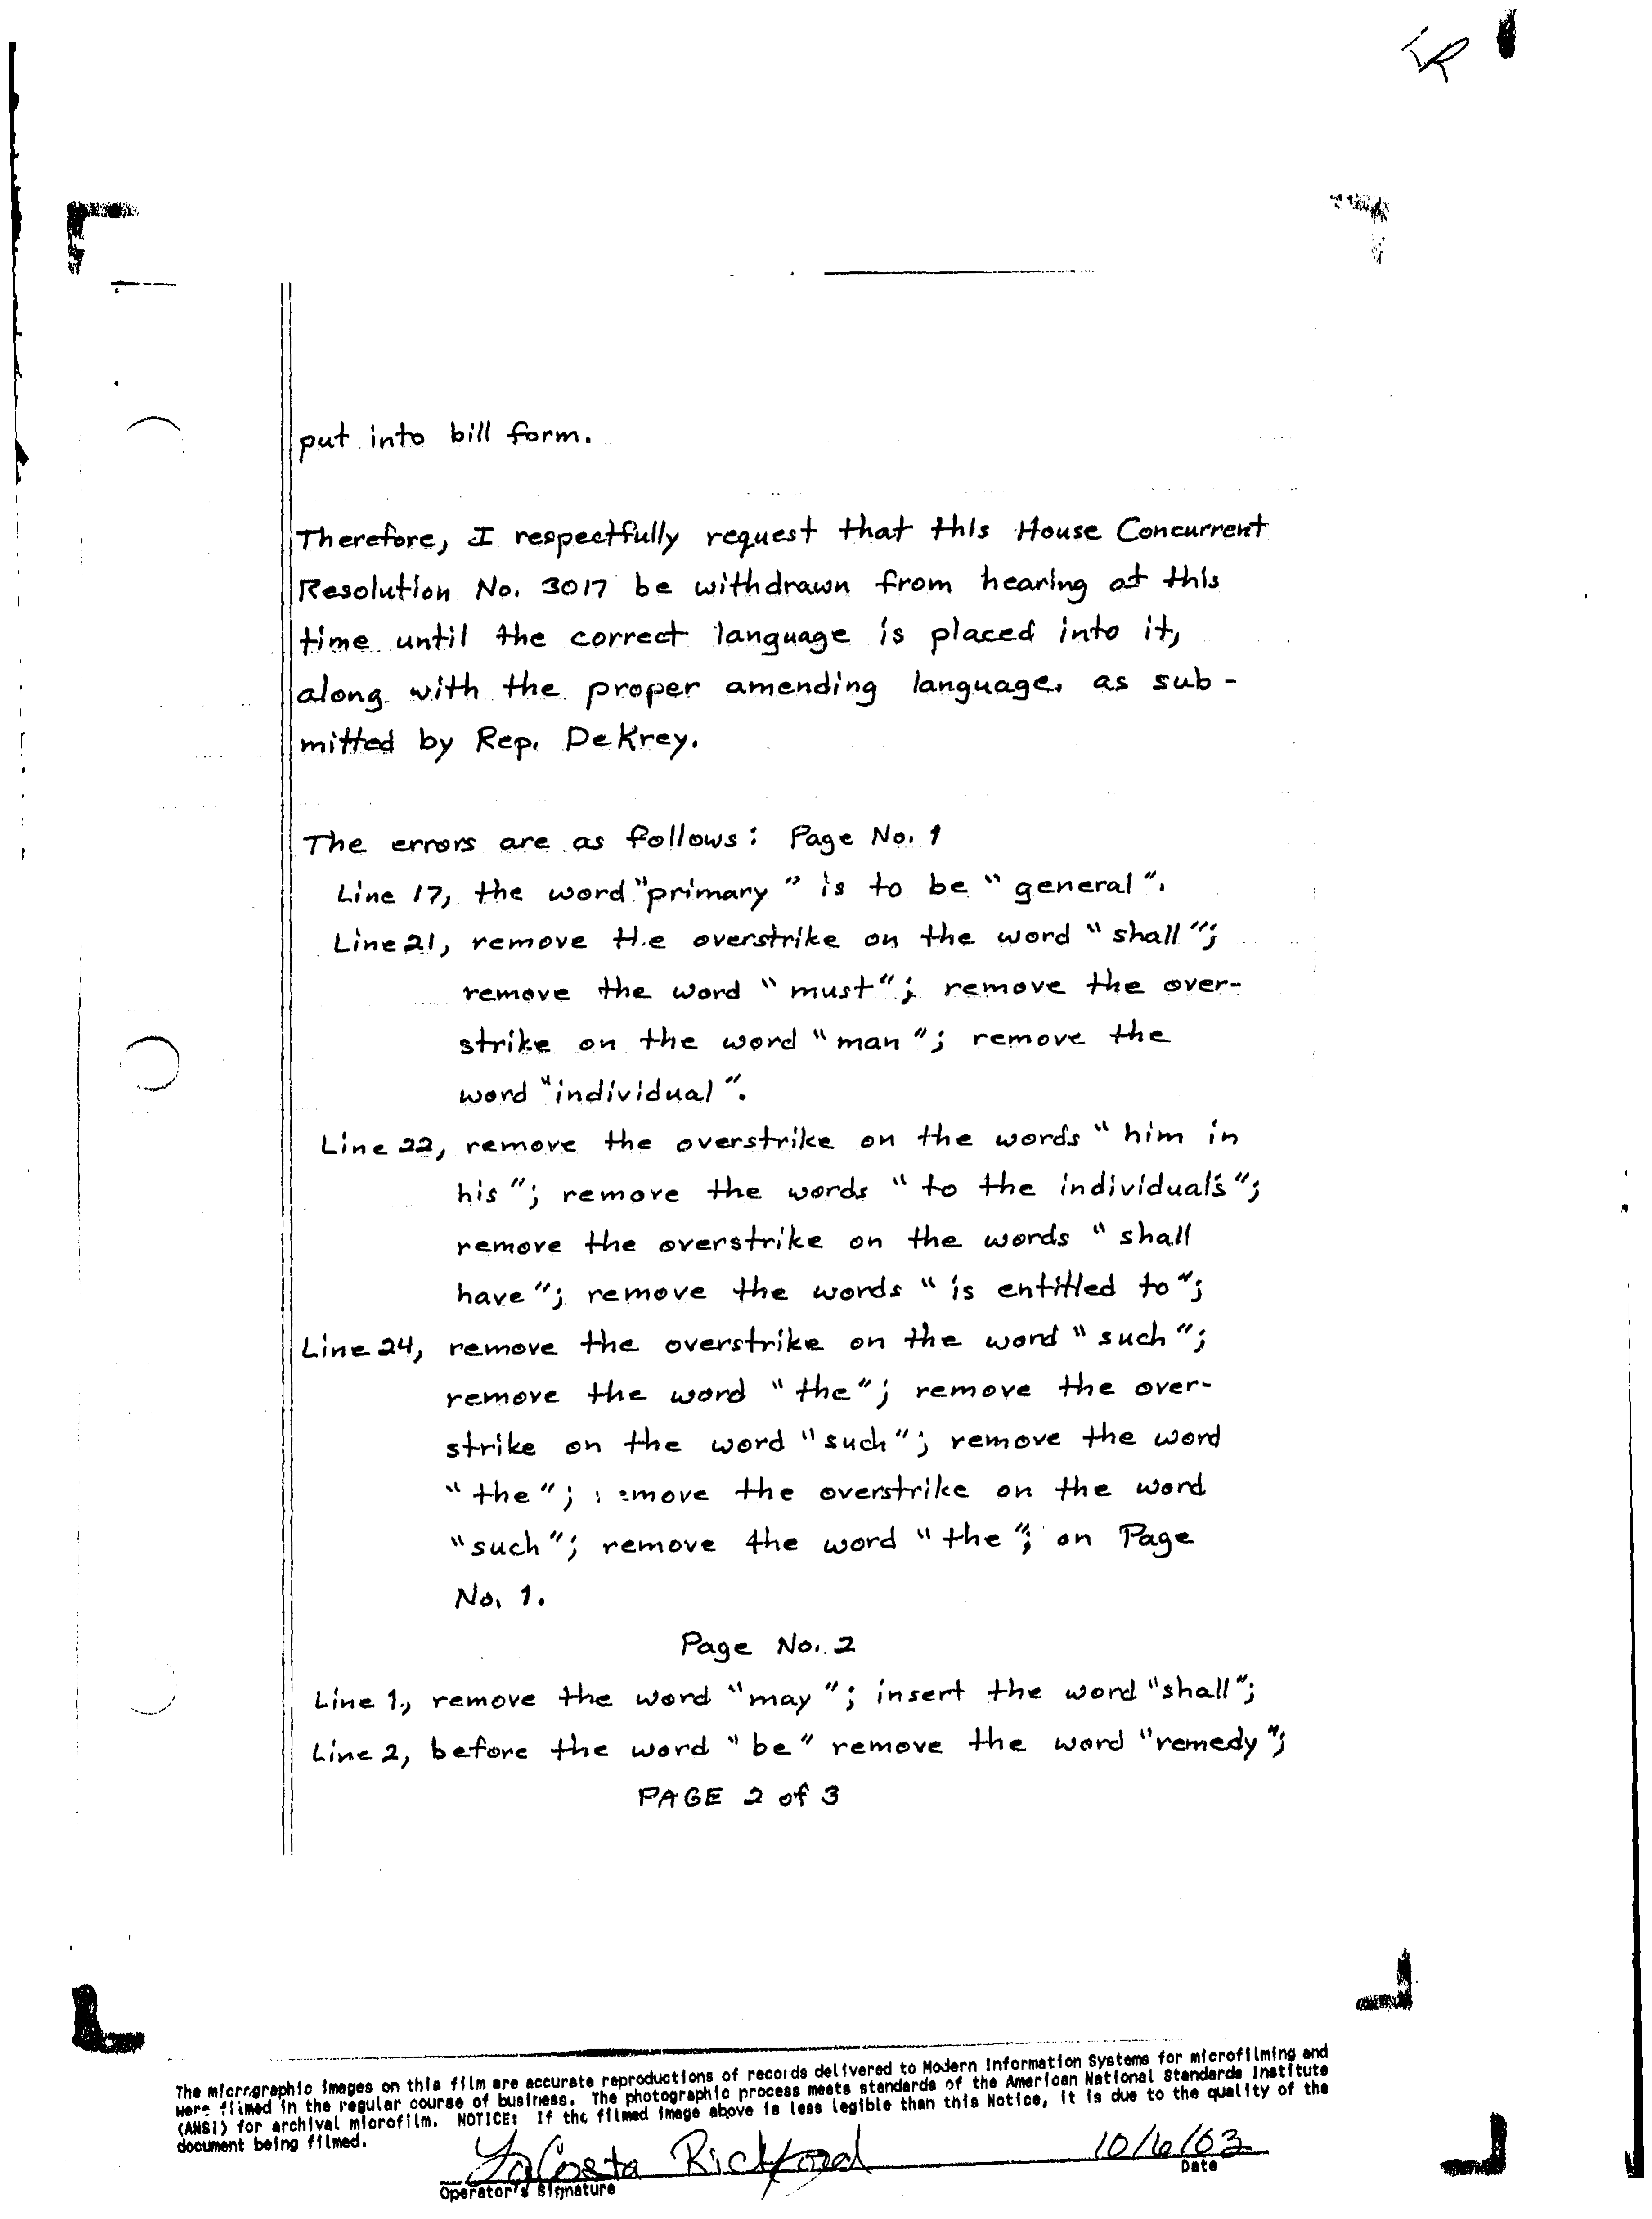 put into bill form.
Therefore, I respectfully request that this House Concurrent
Resolution No. 3017 be withdrawn from hearing at this
time until the correct language is placed into it,
along with the proper amending language, as sub-
mitted by Rep. DeKrey.
The errors are as follows: Page No. 1
Line 17, the word "primary" is to be "general".
Line 21, remove the overstrike on the word "shall";
remove the word "must"; remove the over-
strike on the word "man"; remove the
word "individual".
Line 22, remove the overstrike on the words "him in
his"; remove the words "to the individual's";
remove the overstrike on the words "shall
have"; remove the words "is entitled to";
Line 24, remove the overstrike on the word "such";
remove the word "the"; remove the over-
strike on the word "such"; remove the word
"the"; remove the overstrike on the word
"such"; remove the word "the"; on Page
No. 1.
Page No. 2
Line 1, remove the word "may"; insert the word "shall";
Line 2, before the word "be" remove the word "remedy";
PAGE 2 of 3
The micrographic images on this film are accurate reproductions of records delivered to Modern Information Systems for microfilming and
were filmed in the regular course of business. The photographic process meets standards of the American National Standards Institute
(ANSI) for archival microfilm. NOTICE: If the filmed image above is less legible than this Notice, it is due to the quality of the
document being filmed.
LaCosta Rickford 10/6/03
Operator's Signature Date